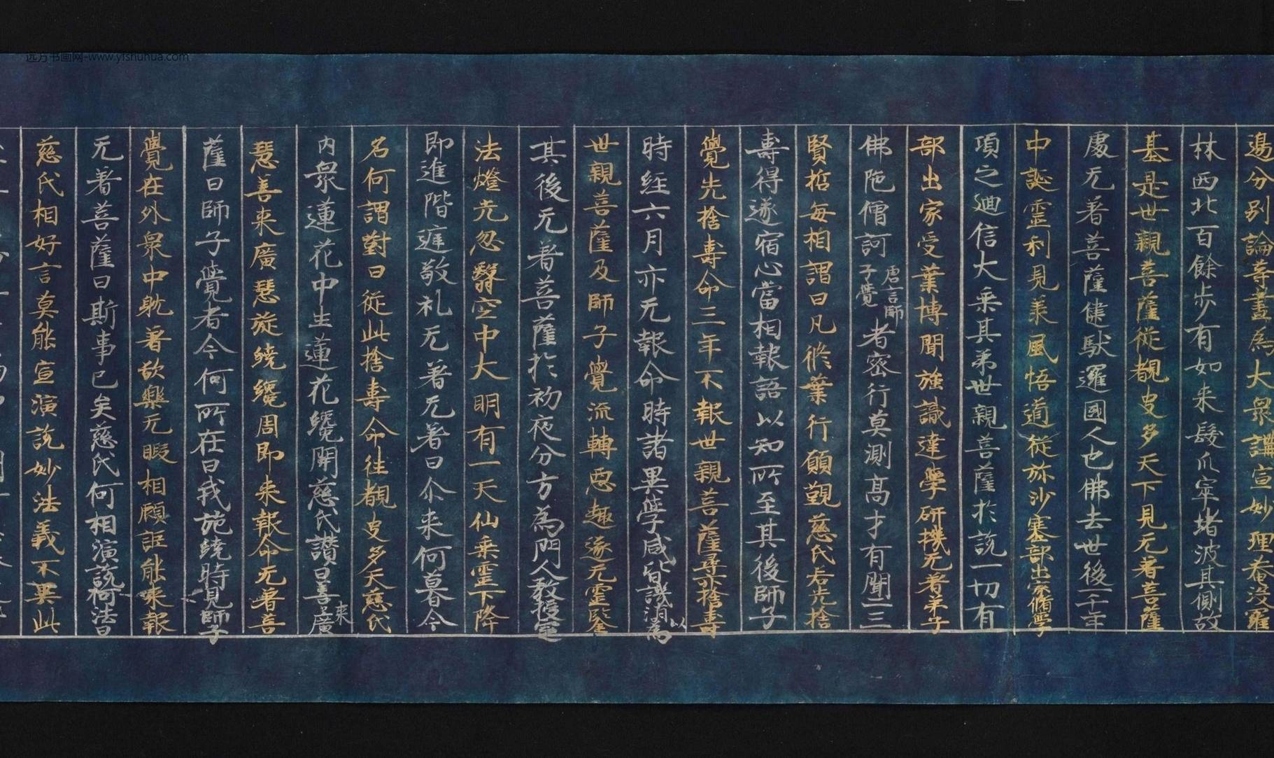 邊分別論等晝為大眾講宣妙理菴沒羅
林西北百餘步有如来髮爪窣堵波其側故
基是世親菩薩從覩史多天下見无著菩薩
處无著菩薩健馱邏國人也佛去世後一千年
中誕靈利見承風悟道從弥沙塞部出家脩學
頃之迴信大乘其弟世親菩薩於說一切有
部出家受業博聞強識達學研機无著弟子
佛陁僧訶唐言師子覺者密行莫測高才有聞二三
賢哲每相謂曰凡修業行願覲慈氏若先捨
壽得遂宿心當相報語以知所至其後師子
覺先捨壽命三年不報世親菩薩尋捨壽
時経六月亦无報命時諸異學咸皆譏誚以為
世親菩薩及師子覺流轉惡趣遂无靈鑒
其後无著菩薩於初夜分方為門人教授定
法燈光忽翳空中大明有一天仙乘靈下降
即進階庭敬礼无著无著曰尒来何暮今
名何謂對曰從此捨壽命往覩史多天慈氏
內眾蓮花中生蓮花纔開慈氏讚曰善来廣
慧善来廣慧旋繞纔周即来報命无著菩
薩曰師子覺者今何所在曰我旋繞時見師子
覺在外眾中躭著欲樂无暇相顧詎能来報
无著菩薩曰斯事已矣慈氏何相演說何法曰
慈氏相好言莫能宣演說妙法義不異此
远方书画网-www.yishuhua.com